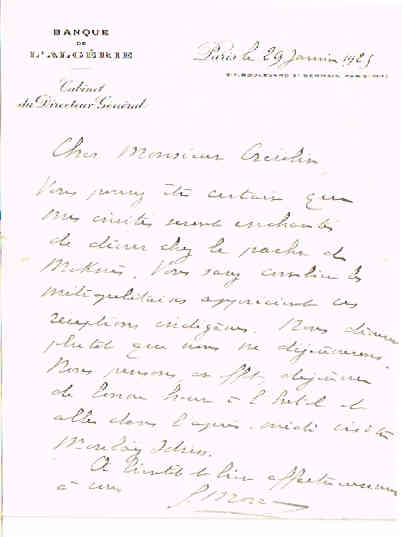 BANQUE
DE
L'ALGÉRIE
Cabinet
du Directeur Général
Paris le 29 Janvier 1925
BOULEVARD ST GERMAIN, PARIS
Cher Monsieur
Vous pouvez être certain que
mes invités seront enchantés
de dîner chez le pacha de
Meknès. Vous savez combien les
métropolitains apprécient ces
réceptions indigènes. Nous dînerons
plutôt que nous ne déjeunerons.
Nous pensons, en effet, déjeuner
de bonne heure à l'hotel et
aller dans l'après-midi visiter
Moulay Idriss.
A bientôt et bien affectueusement
à vous